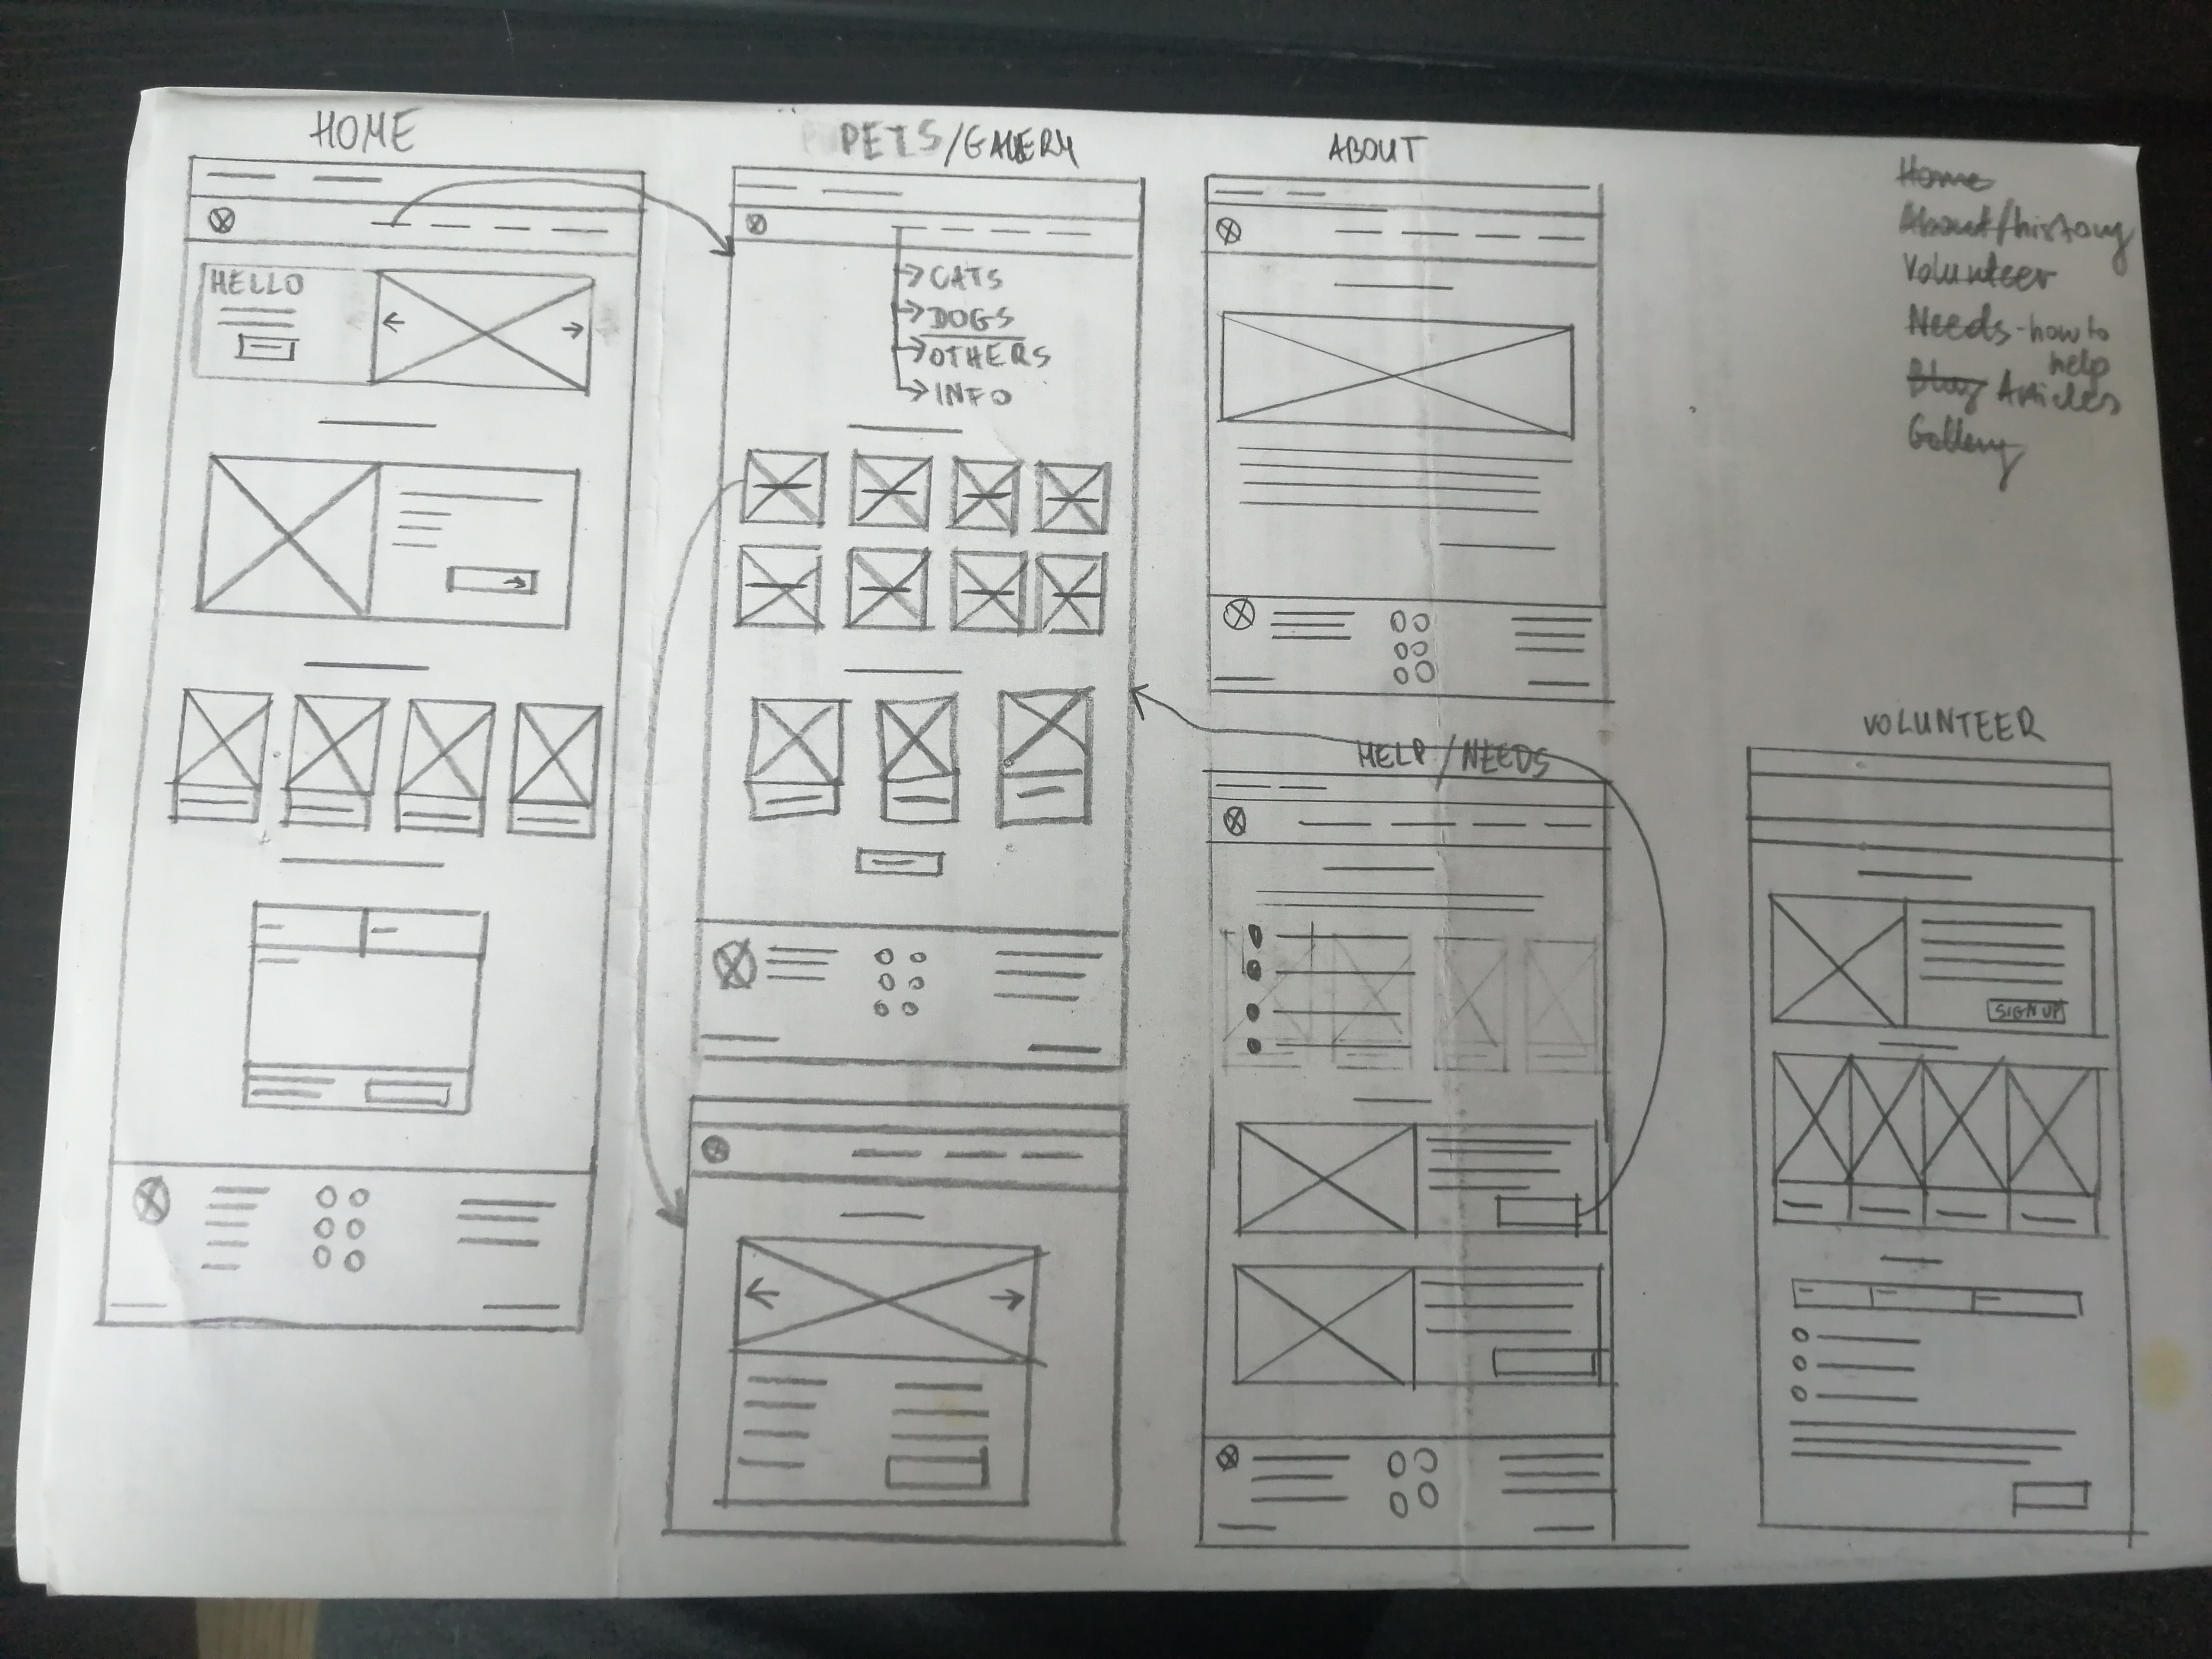 HOME
PETS/GALERY
ABOUT
Home
About/history
Volunteer
Needs-how to
help
Blog Articles
Gallery
HELLO
CATS
DOGS
OTHERS
INFO
HELP/NEEDS
VOLUNTEER
SIGN UP